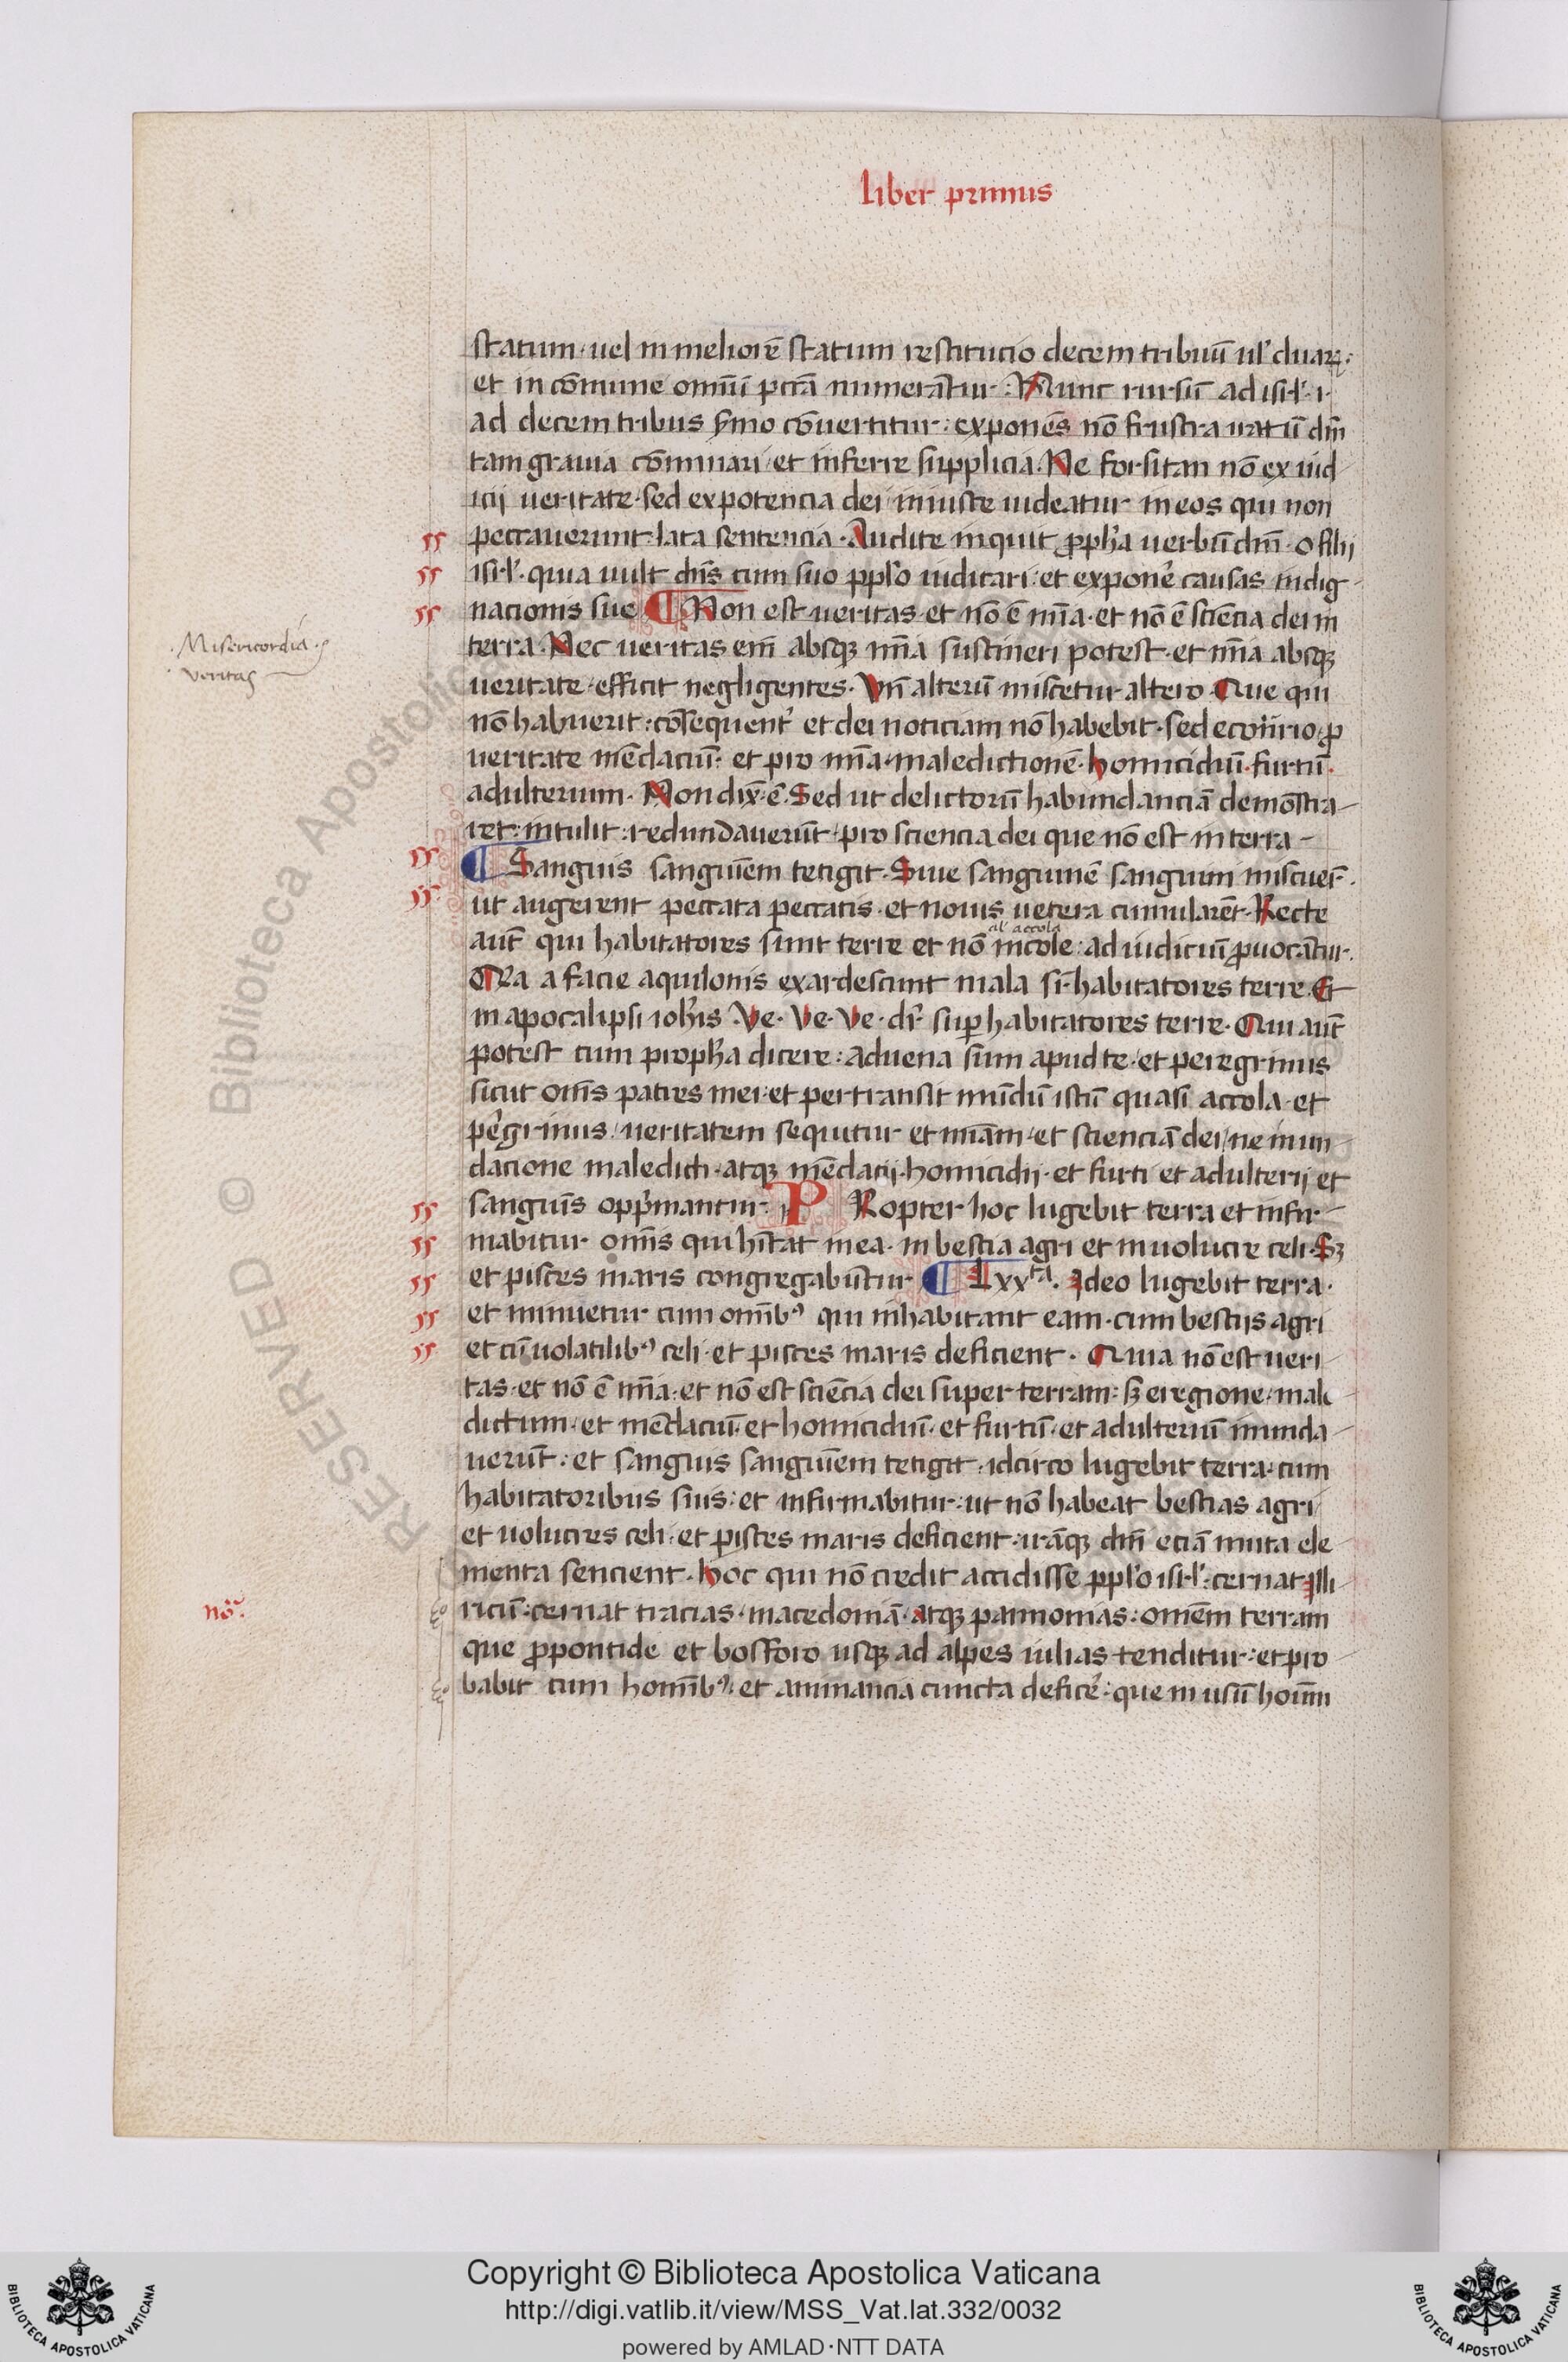 liber primus
statum· uel in meliorē statum restitucio decem tribuū ul' duaꝝ:
et in cōmune omniū pctā numerāntur: Nunc rursū ad isrl'·i·
ad decem tribus s̄mo cōuertitur: exponēs nō frustra iratū dn̄m
tam grauia cōminari· et inferre supplicia. Ne forsitan nō ex iud
icij ueritate· sed ex potencia dei iniuste uideatur in eos qui non
peccauerunt· lata sentencia. Audite inquit ꝓph̄a uerbū dn̄i· o filij
isrl'· quia uult dn̄s cum suo ppl'o iudicari· et exponē causas indig
nacionis sue ¶ Non est ueritas· et nō ē mīa· et nō ē sciēcia dei in
Misericordia ⁊
veritas
terra. Nec ueritas em̄ absqꝫ mīa sustineri potest· et mīa absqꝫ
ueritate· efficit negligentes. Vn̄ alterū miscetur altero. Que qui
nō habuerit: cōsequent' et dei noticiam nō habebit· sed econ̄trio ꝓ
ueritate mēdaciū· et pro mīa· maledictionē· homicidiū· furtū·
adulterium. Non dix̄·ē· Sed ut delictorū habundanciā demōstra
ret: intulit: redundauerūt· pro sciencia dei que nō est in terra
¶ Sanguis sanguīem tetigit. Siue sanguinē sanguini miscuer̄·
ut augerent peccata peccatis· et nouis uetera cumularēt. Recte
al' accola
aut̄ qui habitatores sunt terre et nō incole: ad iudiciū ꝓuocātur.
Qia a facie aquilonis exardescunt mala sr̄ habitatores terre. Et
in apocalipsi ioh̄is Ve· Ve· Ve· dr̄ suꝑ habitatores terre. Qui aut̄
potest cum proph̄a dicere: aduena sum apud te· et peregrinus
sicut om̄s patres mei· et pertransit mūdū istū quasi accola· et
pe'grinus· ueritatem sequitur et mīam· et scienciā dei· ne inun
dacione maledicti· atqꝫ mēdacij· homicidij· et furti et adulterij et
sanguīs opp'mantur. PRopter hoc lugebit terra et infir
mabitur om̄is qui hītat in ea· in bestia agri et in uolucre celi· Sꝫ
et pisces maris congregabūtur ¶ Lxxta. Ideo lugebit terra·
et minuetur cum om̄ibꝰ qui inhabitant eam· cum bestijs agri
et cū uolatilibꝰ celi· et pisces maris deficient. Quia nō est ueri
tas· et nō ē mīa· et nō est sciēcia dei super terram: sꝫ e regione· male
dictum· et mēdaciū· et homicidiū· et furtū· et adulteriū inunda
uerūt: et sanguis sanguīem tetigit· idcirco lugebit terra· cum
habitatoribus suis· et infirmabitur· ut nō habeat bestias agri
et uolucres celi· et pisces maris deficient· irāqꝫ dn̄i eciā muta ele
menta sencient. Hoc qui nō credit accidisse ppl'o isrl'· cernat Illi
nōᵃ
ricū: cernat tracias· macedoniā· atqꝫ pannonias: omēm terram
que ꝓpontide et bosforo usqꝫ ad alpes iulias tenditur: et pro
babit cum homībꝰ et animancia cuncta deficē: que in usū hoīum
Copyright © Biblioteca Apostolica Vaticana
http://digi.vatlib.it/view/MSS_Vat.lat.332/0032
powered by AMLAD·NTT DATA
RESERVED © Biblioteca Apostolica
BIBLIOTECA APOSTOLICA VATICANA
BIBLIOTECA APOSTOLICA VATICANA